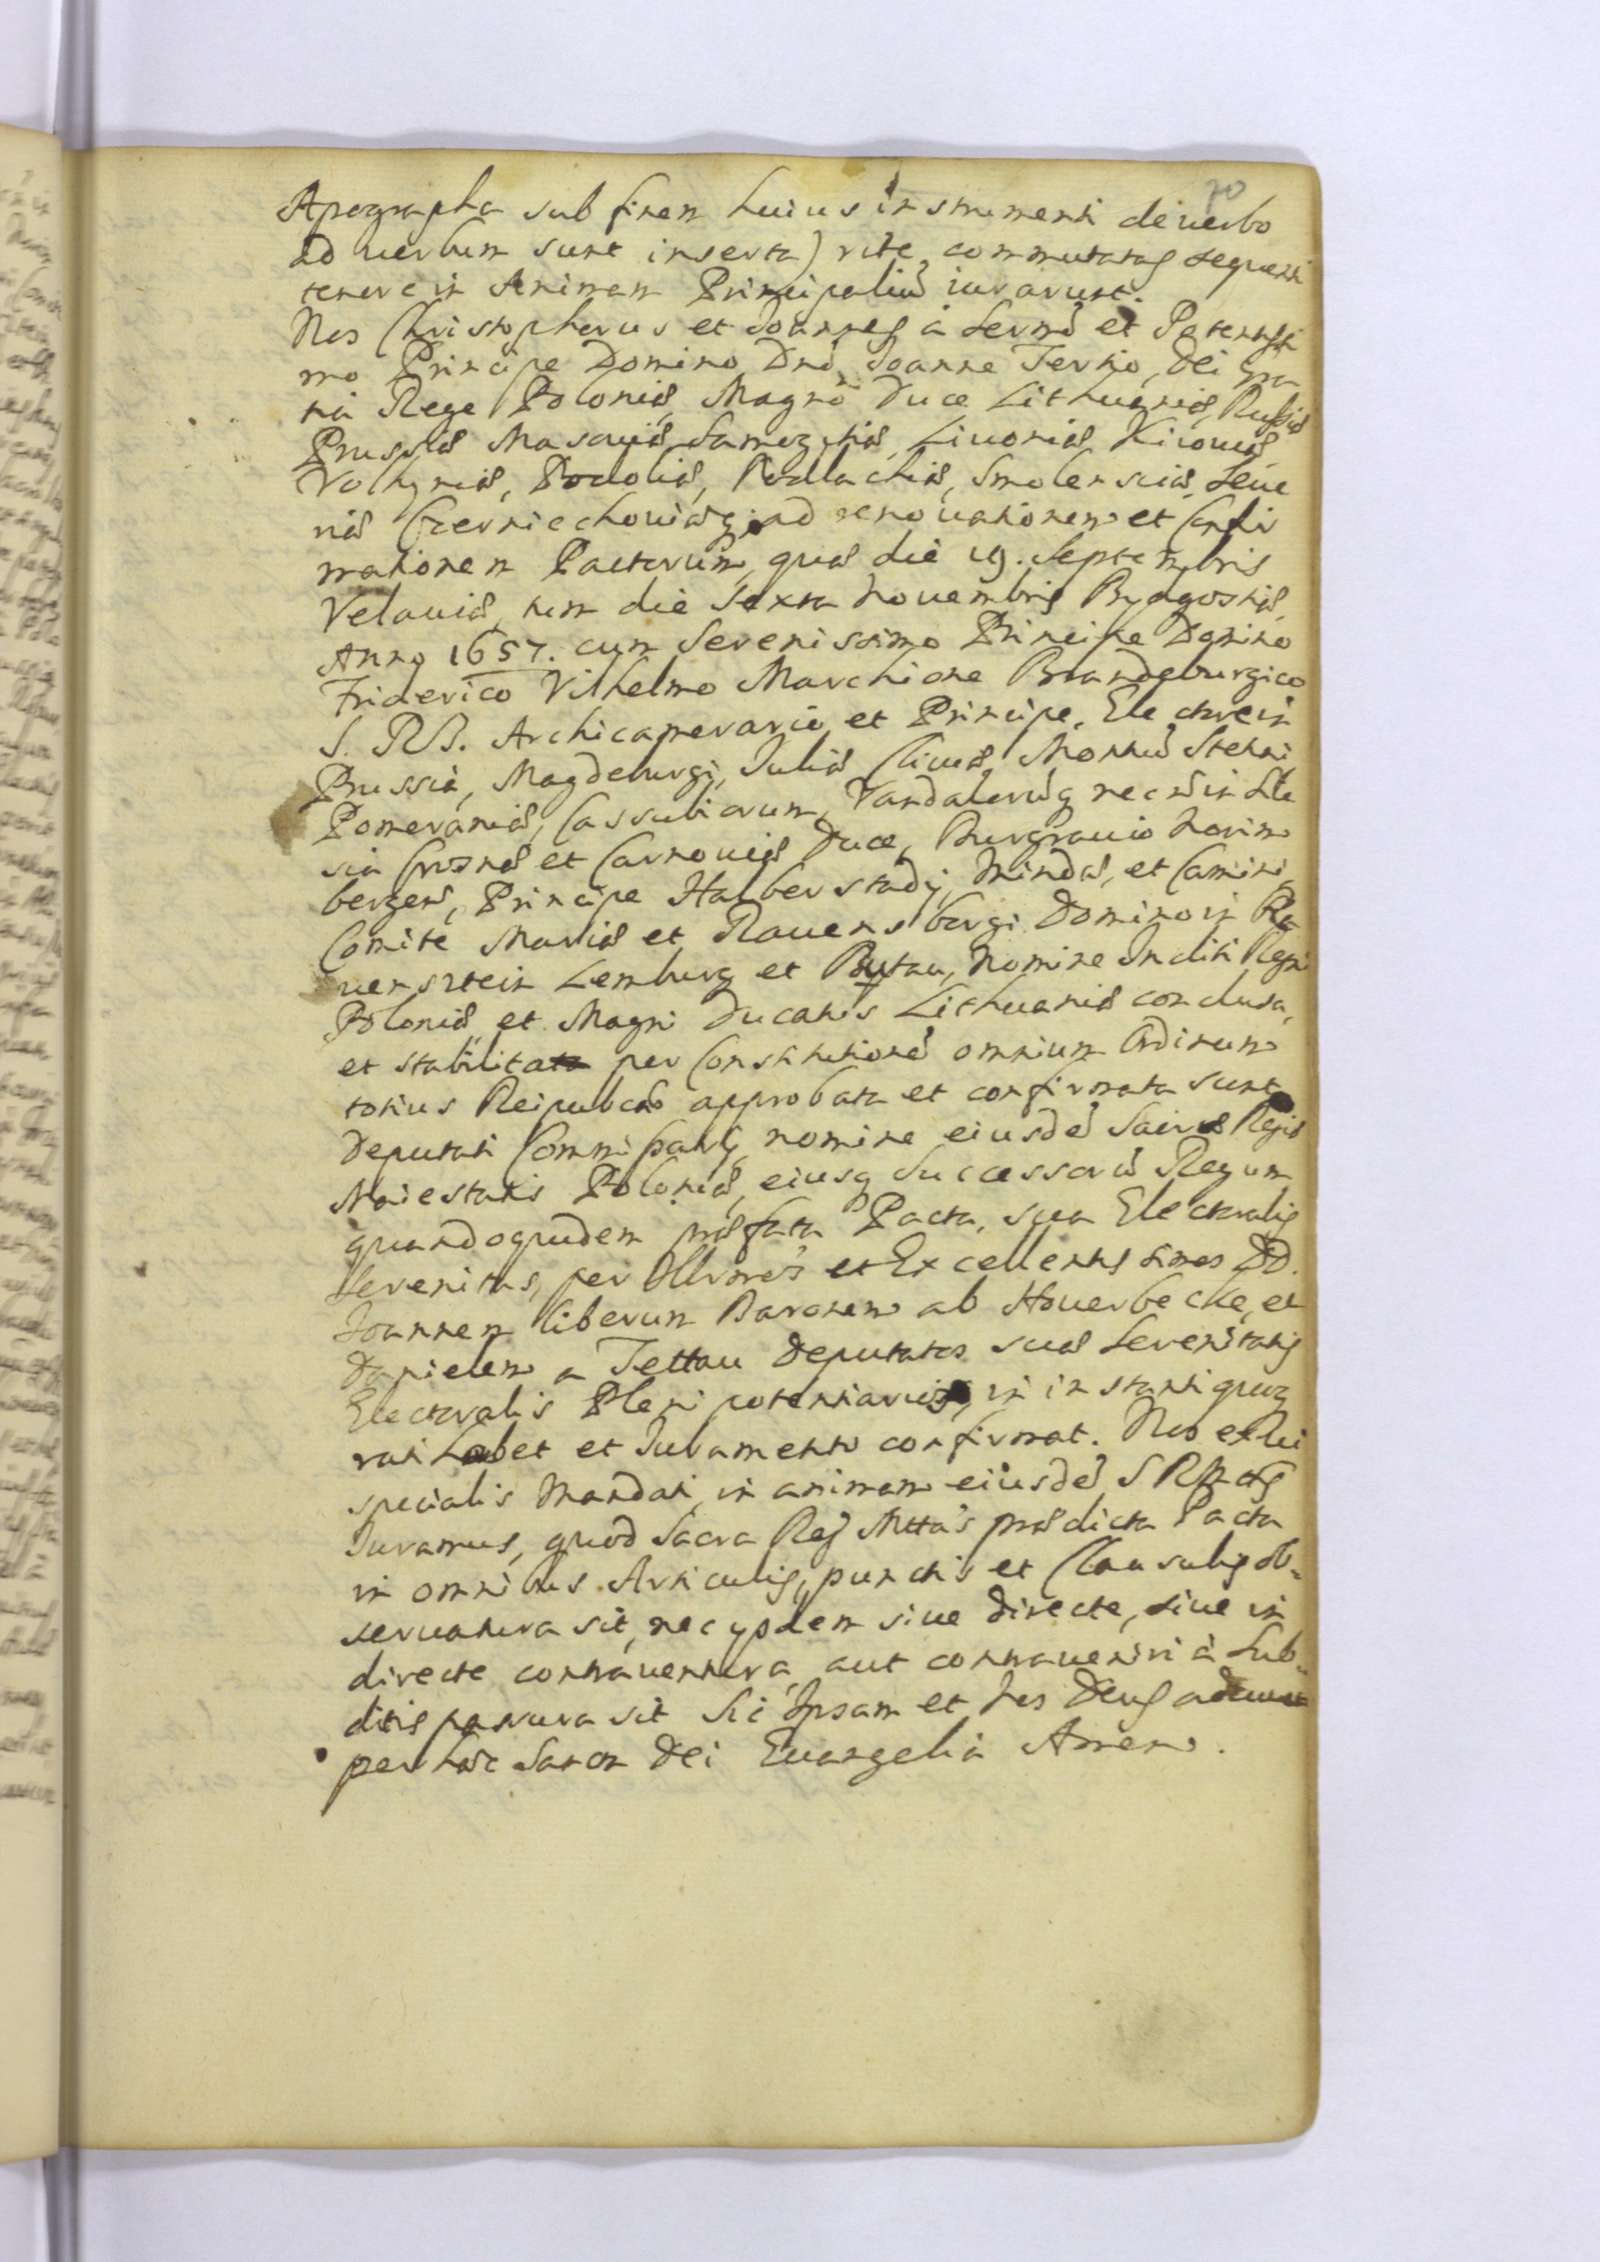 70
Apographa sub finem huius instrumenti de uerbo
ad uerbum sunt inserta) rite commutatas sequenti
tenore in Animam Principaliū iurarunt.
Nos Christopherus et Joannes à Sermo et Potentissi
mo Principe Domino Dno Joanne Tertio, Dei Gra
tia Rege Poloniæ, Magno Duce Lithuaniæ, Russiæ
Prussiæ Masouiæ Samogitiæ, Liuoniæ, Kiouiæ,
Volhyniæ, Podoliæ, Podlachiæ, Smolensciæ, Seue
riæ Czerniechouiæq; ad renouationem et Confir
mationem Pactorum, quæ die 19. Septembris
Velauiæ, tum die Sexta Nouembris Bydgostiæ,
Anno 1657. cum Serenissimo Principe Domino
Friderico Vilhelmo Marchione Brandeburgico
S. R. I. Archicamerario et Principe, Electore in
Prussia, Magdeburgi, Juliæ Cliuiæ, Montiū Stetini,
Pomeraniæ, Cassubiorum, Vandalorūq necnō in Sile
sia Crosnæ et Carnouiæ Duce, Burgrauio Norim
bergen, Principe Halberstadij, Mindæ, et Camini,
Comite Marciæ et Rauensbergi Domino in Ra
uenstein Lemburg et Bytau, Nomine Incliti Regni
Poloniæ, et Magni Ducatus Lithuaniæ conclusa,
et stabilita per Constitutionē omnium Ordinum
totius Reipubcæ approbata et confirmata sunt
Deputati Commissarij, nomine eiusdē Sacræ Regiæ
Maiestatis Poloniæ, eiusq Successorū Regum
quandoquidem præfata Pacta, sua Electoralis
Serenitas, per Illrmos et Excellentissimos DD.
Joannem liberum Baronem ab Houerbecke, et
Danielem a Tettau Deputatos suæ Serenitatis
Electoralis Plenipotentiarios, in instanti quoq
ratihabet et Iuramento confirmat. Nos ex ui
specialis Mandati, in animam eiusdē S R Mtis
Iuramus, quod Sacra Reg Mttas prædicta Pacta
in omnibus Articulis, punctis et Clausulis ob-
seruatura sit, nec ijsdem siue directe, siue in
directe contrauentura, aut contraueniri à Sub-
ditis passura sit Sic Ipsam et Nos Deus adiuuet
per hæc Sancta Dei Euangelia Amen.